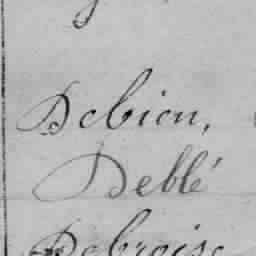 Debien,
Deblé
Debroise